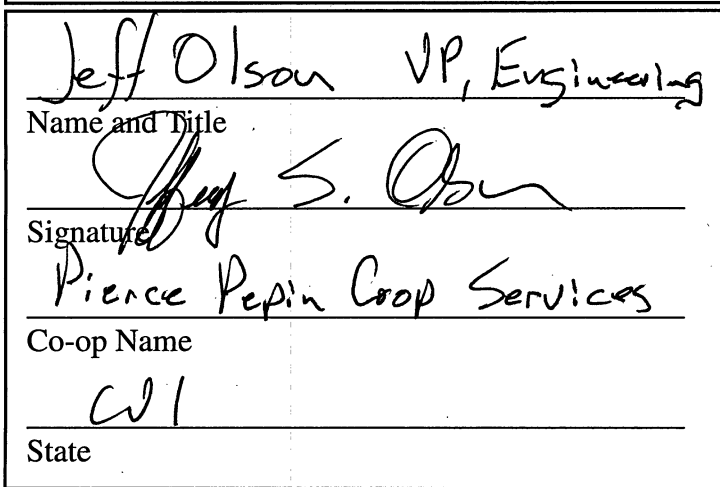 Jeff Olson VP, Engineering
Name and Title
S. Olson
Signature
Pierce Pepin Coop Services
Co-op Name
WI
State